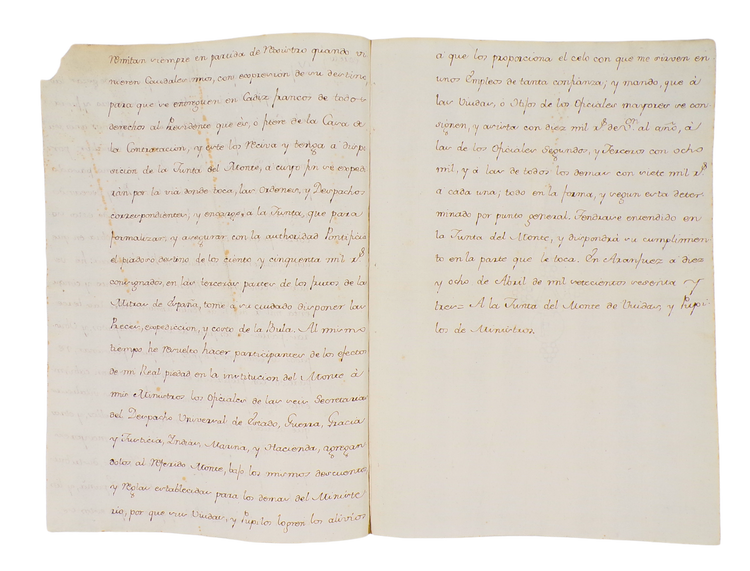 Remitan siempre en partida de Registro quando vi
nieren Caudales mios, con expresion de su destino
para que se entreguen en Cadiz francos de todos
derechos al Presidente que es, ò fuere de la Casa de
la Contratacion, y este los Reciva y tenga à dispo
sicion de la Junta del Monte, a cuyo fin se expedi
rán por la via donde toca, las Ordenes, y Despachos
correspondientes, y encargo, a la Junta, que para
formalizar, y asegurar con la authoridad Pontificia
el piadoso destino de los ciento, y cinquenta mil r.s
consignados, en las terceras partes de los frutos de las
Mitras de España, tome a su cuidado disponer las
Preces, expediccion, y costo de la Bula. Al mismo
tiempo he Resuelto hacer participantes de los efectos
de mi Real piedad en la institucion del Monte, à
mis Ministros los Oficiales de las seis Secretarias
del Despacho Universal de Estado, Guerra, Gracia
y Justicia, Indias, Marina, y Hacienda, agregan
dolos al Referido Monte, bajo los mismos descuentos,
y Reglas establecidas para los demas del Ministe
rio, por que sus Viudas, y Pupilos logren los alivios
à que los proporciona el celo con que me sirven en
unos Empleos de tanta confianza; y mando, que à
las Viudas, ò Hijos de los Oficiales mayores se con
sionen, y asista con diez mil r.s de V.n al año, à
las de los Oficiales Segundos, y Terceros con ocho
mil, y à las de todos los demas con siete mil r.s
a cada una; todo en la forma, y segun esta deter
minado por punto general. Tendrase entendido en
la Junta del Monte, y dispondrá su cumplimien
to en la parte que le toca. En Aranjuez a diez
y ocho de Abril de mil setecientos sesenta y
tres= A la Junta del Monte de Viudas, y Pupi
los de Ministros.